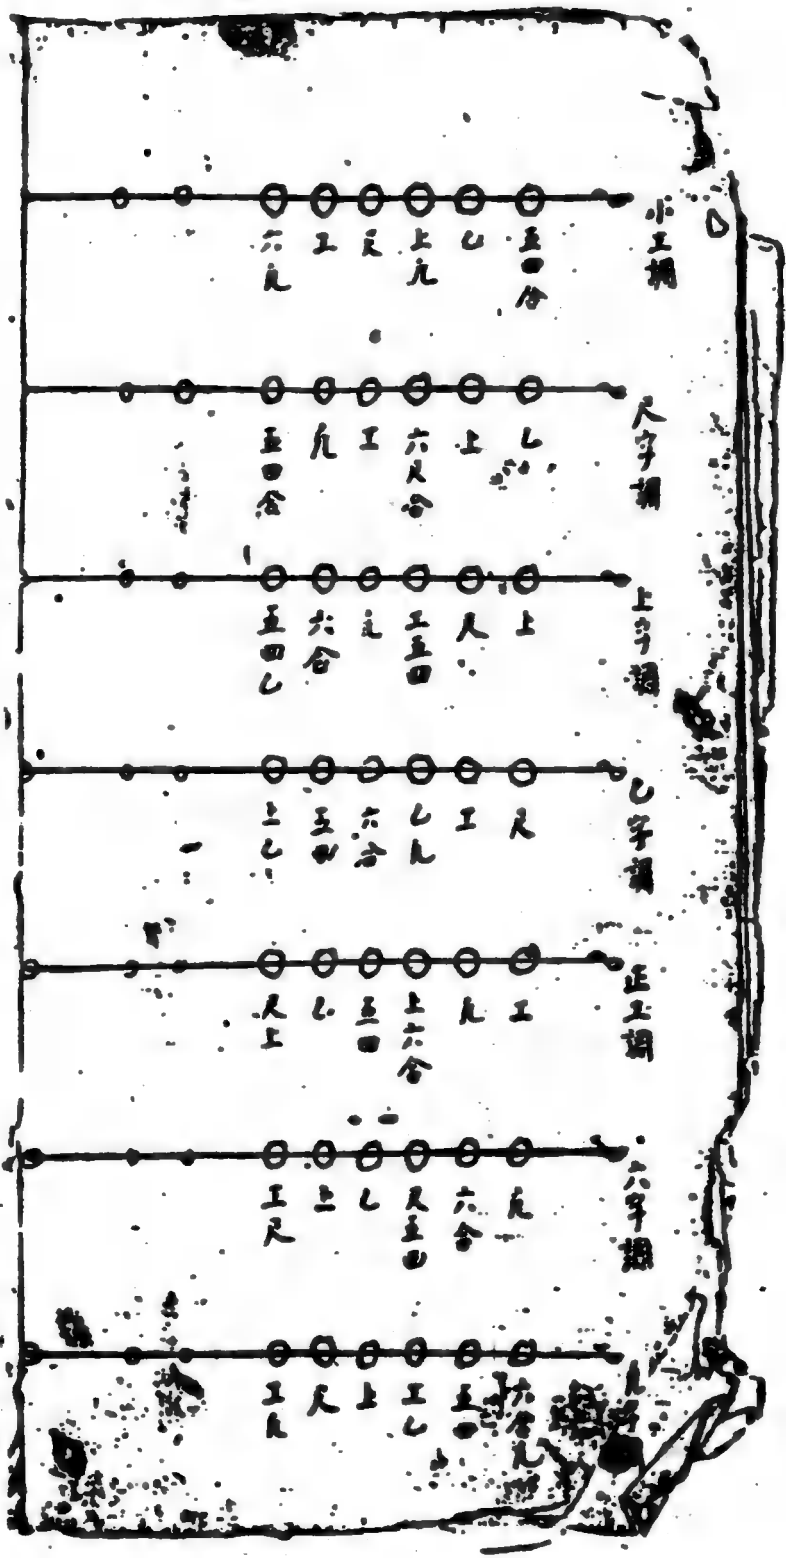 小工調
五四合
乙
上凡
尺
工
六凡
尺字調
乙
上
六尺合
工
凡
五四合
上字調
上
尺
工五四
凡
六合
五四乙
乙字調
尺
工
乙凡
六合
五四
上乙
正工調
工
凡
上六合
五四
乙
尺上
六字調
凡
六合
尺五四
乙
上
工尺
凡字
六合凡
五四
工乙
上
尺
工凡